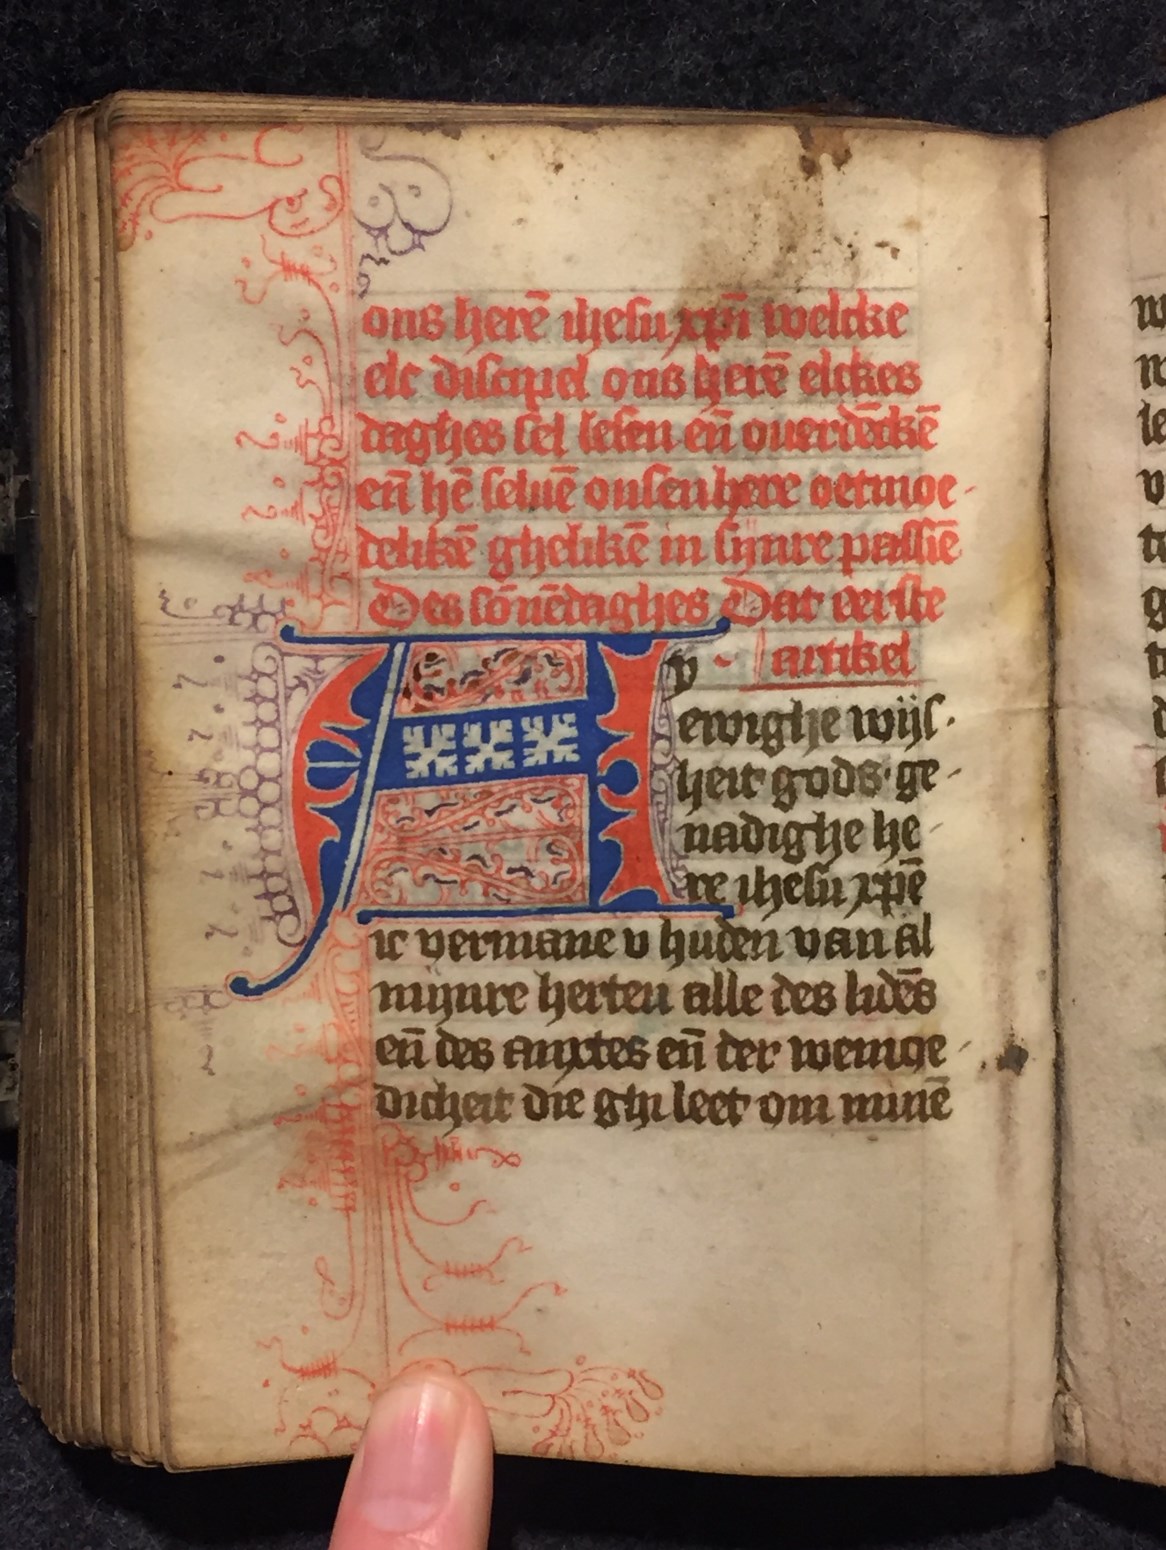 ons herē ihesu xpī welcke
elc discipel ons herē elckes
daghes sel lesen eñ ouerdēckē
eñ hē seluē onsen here oetmoe-
delikē ghelikē in sijnre passiē
Des sōnēdaghes Dat eerste
artikel
A
ewighe wijs-
heit gods ge-
nadighe he
re ihesu xpē
ic vermane v huden van al
mijnre herten alle des lidēs
eñ des anxtes eñ der wemoe-
dicheit die ghi leet om minē